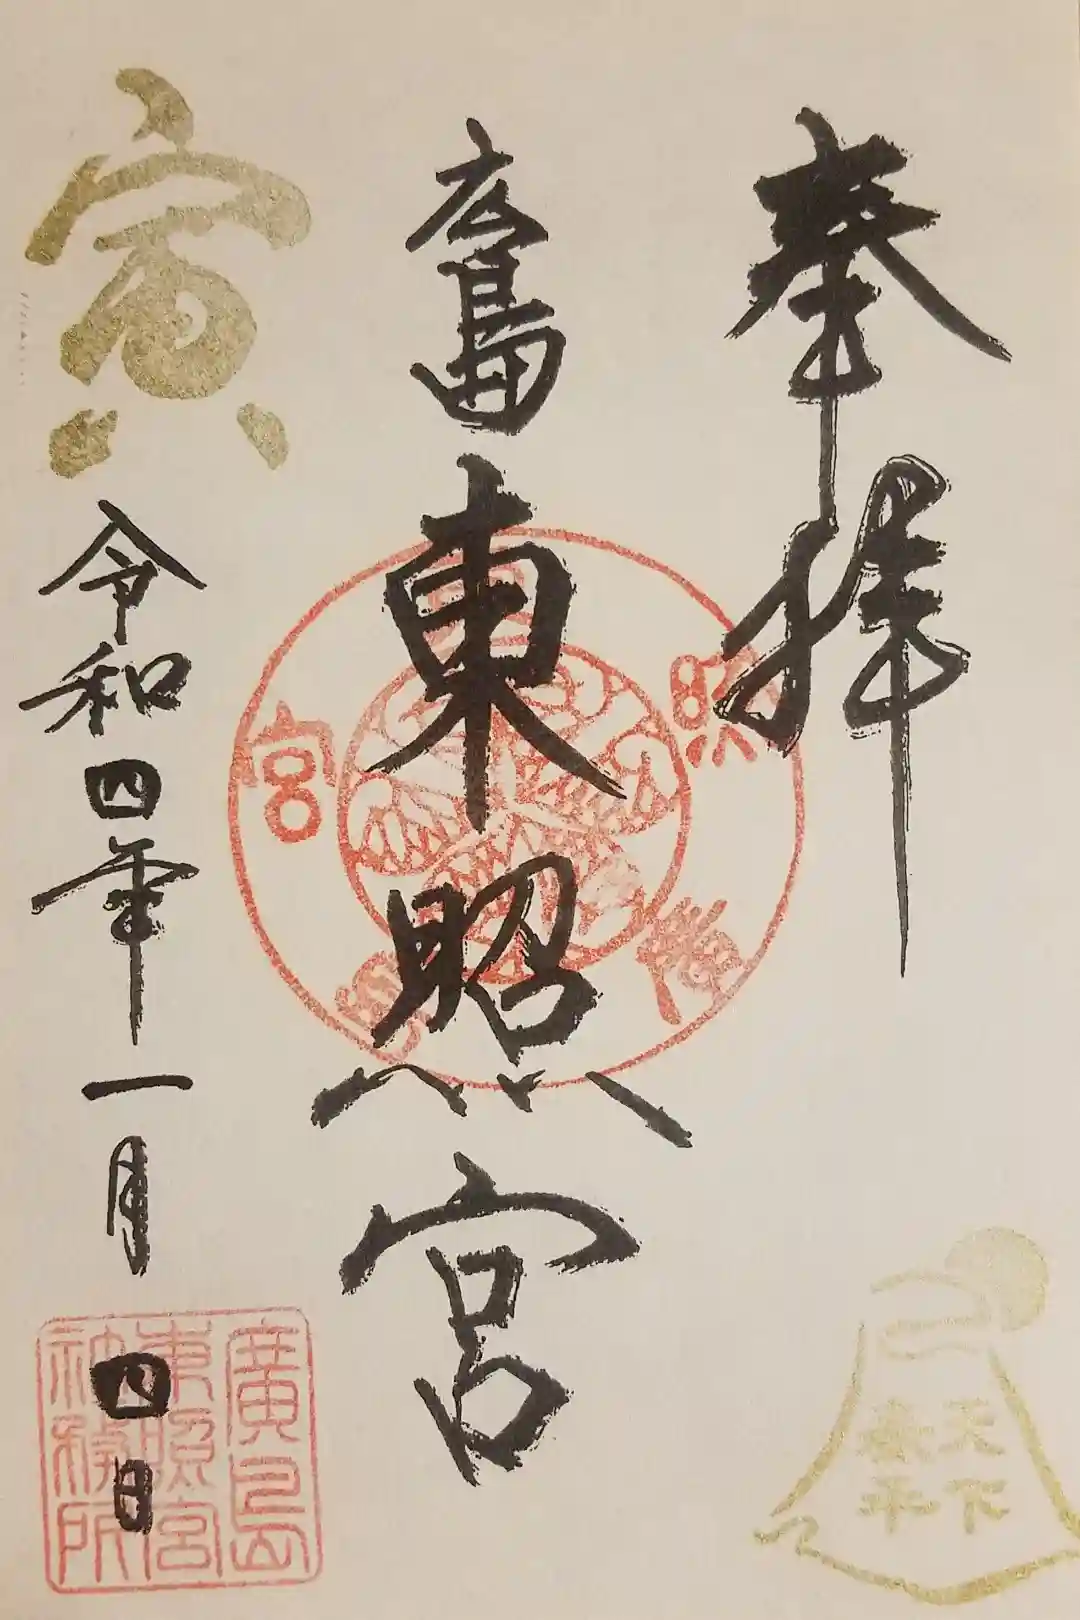 奉拝
広島東照宮
寅
令和四年一月四日
廣島
東照宮
社務所
天下
泰平